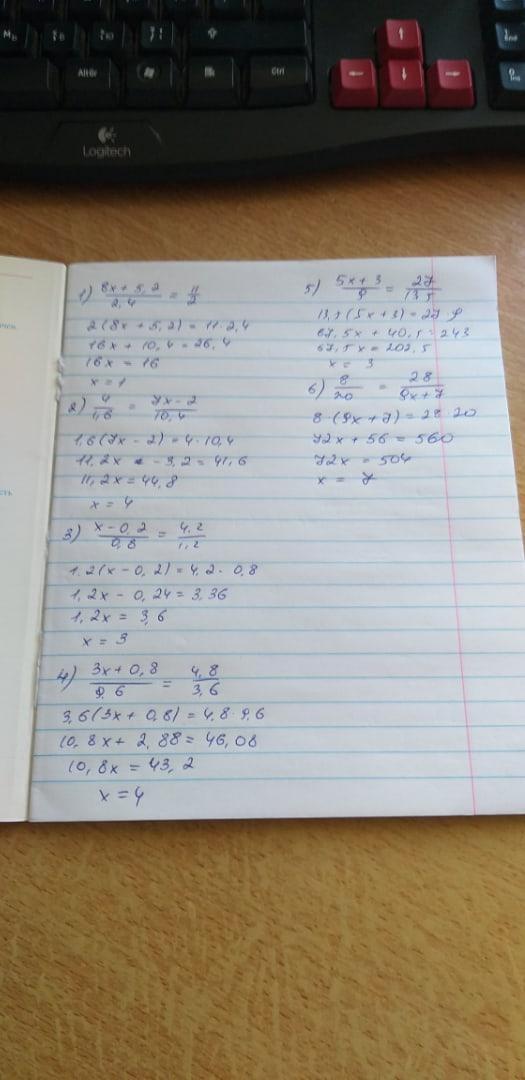 AltGr
Ctrl
Logitech
1) 8x + 5,2 / 2,4 = 11 / 2
2(8x + 5,2) = 11·2,4
16x + 10,4 = 26,4
16x = 16
x = 1
2) 4 / 1,6 = 7x - 2 / 10,4
1,6(7x - 2) = 4·10,4
11,2x - 3,2 = 41,6
11,2x = 44,8
x = 4
3) x - 0,2 / 0,8 = 4,2 / 1,2
1,2(x - 0,2) = 4,2·0,8
1,2x - 0,24 = 3,36
1,2x = 3,6
x = 3
4) 3x + 0,8 / 9,6 = 4,8 / 3,6
3,6(3x + 0,8) = 4,8·9,6
10,8x + 2,88 = 46,08
10,8x = 43,2
x = 4
5) 5x + 3 / 9 = 27 / 13,5
13,5(5x + 3) = 27·9
67,5x + 40,5 = 243
67,5x = 202,5
x = 3
6) 8 / 20 = 28 / 9x + 7
8·(9x + 7) = 28·20
72x + 56 = 560
72x = 504
x = 7